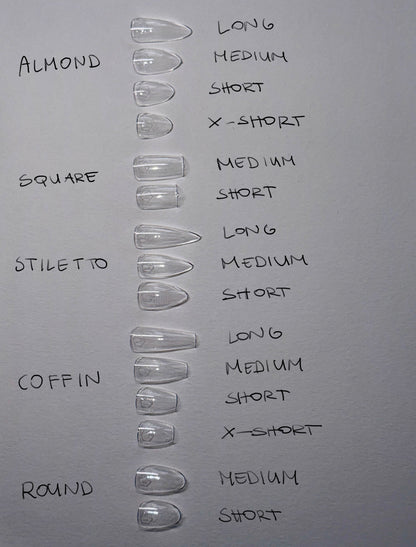 LONG
ALMOND MEDIUM
SHORT
X-SHORT
SQUARE MEDIUM
SHORT
LONG
STILETTO MEDIUM
SHORT
LONG
COFFIN MEDIUM
SHORT
X-SHORT
ROUND MEDIUM
SHORT